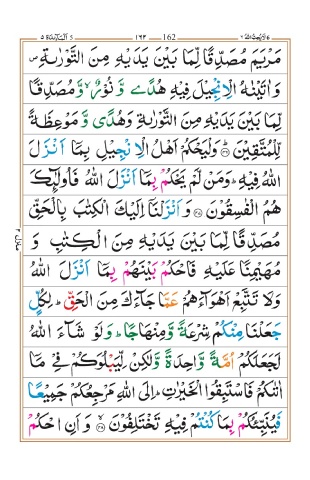 162
مَرْيَمَ مُصَدِّقًا لِّمَا بَيْنَ يَدَيْهِ مِنَ التَّوْرٰىةِ ۪
وَاٰتَيْنٰهُ الْاِنْجِيْلَ فِيْهِ هُدًى وَّ نُوْرٌ ۙ وَّ مُصَدِّقًا
لِّمَا بَيْنَ يَدَيْهِ مِنَ التَّوْرٰىةِ وَهُدًى وَّ مَوْعِظَةً
لِّلْمُتَّقِيْنَ ۞ وَلْيَحْكُمْ اَهْلُ الْاِنْجِيْلِ بِمَاۤ اَنْزَلَ
اللّٰهُ فِيْهِ ؕ وَمَنْ لَّمْ يَحْكُمْ بِمَاۤ اَنْزَلَ اللّٰهُ فَاُولٰٓئِكَ
هُمُ الْفٰسِقُوْنَ ۞ وَ اَنْزَلْنَاۤ اِلَيْكَ الْكِتٰبَ بِالْحَقِّ
مُصَدِّقًا لِّمَا بَيْنَ يَدَيْهِ مِنَ الْكِتٰبِ وَ
مُهَيْمِنًا عَلَيْهِ فَاحْكُمْ بَيْنَهُمْ بِمَاۤ اَنْزَلَ اللّٰهُ
وَلَا تَتَّبِعْ اَهْوَآءَهُمْ عَمَّا جَآءَكَ مِنَ الْحَقِّ ؕ لِكُلٍّ
جَعَلْنَا مِنْكُمْ شِرْعَةً وَّ مِنْهَاجًا ؕ وَ لَوْ شَآءَ اللّٰهُ
لَجَعَلَكُمْ اُمَّةً وَّاحِدَةً وَّلٰكِنْ لِّيَبْلُوَكُمْ فِيْ مَاۤ
اٰتٰىكُمْ فَاسْتَبِقُوا الْخَيْرٰتِ ؕ اِلَى اللّٰهِ مَرْجِعُكُمْ جَمِيْعًا
فَيُنَبِّئُكُمْ بِمَا كُنْتُمْ فِيْهِ تَخْتَلِفُوْنَ ۞ وَ اَنِ احْكُمْ